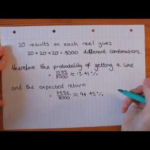 20 results on each reel gives
20 * 20 * 20 = 8000 different combinations.
therefore the probability of getting a line
8000
and the expected return
8000